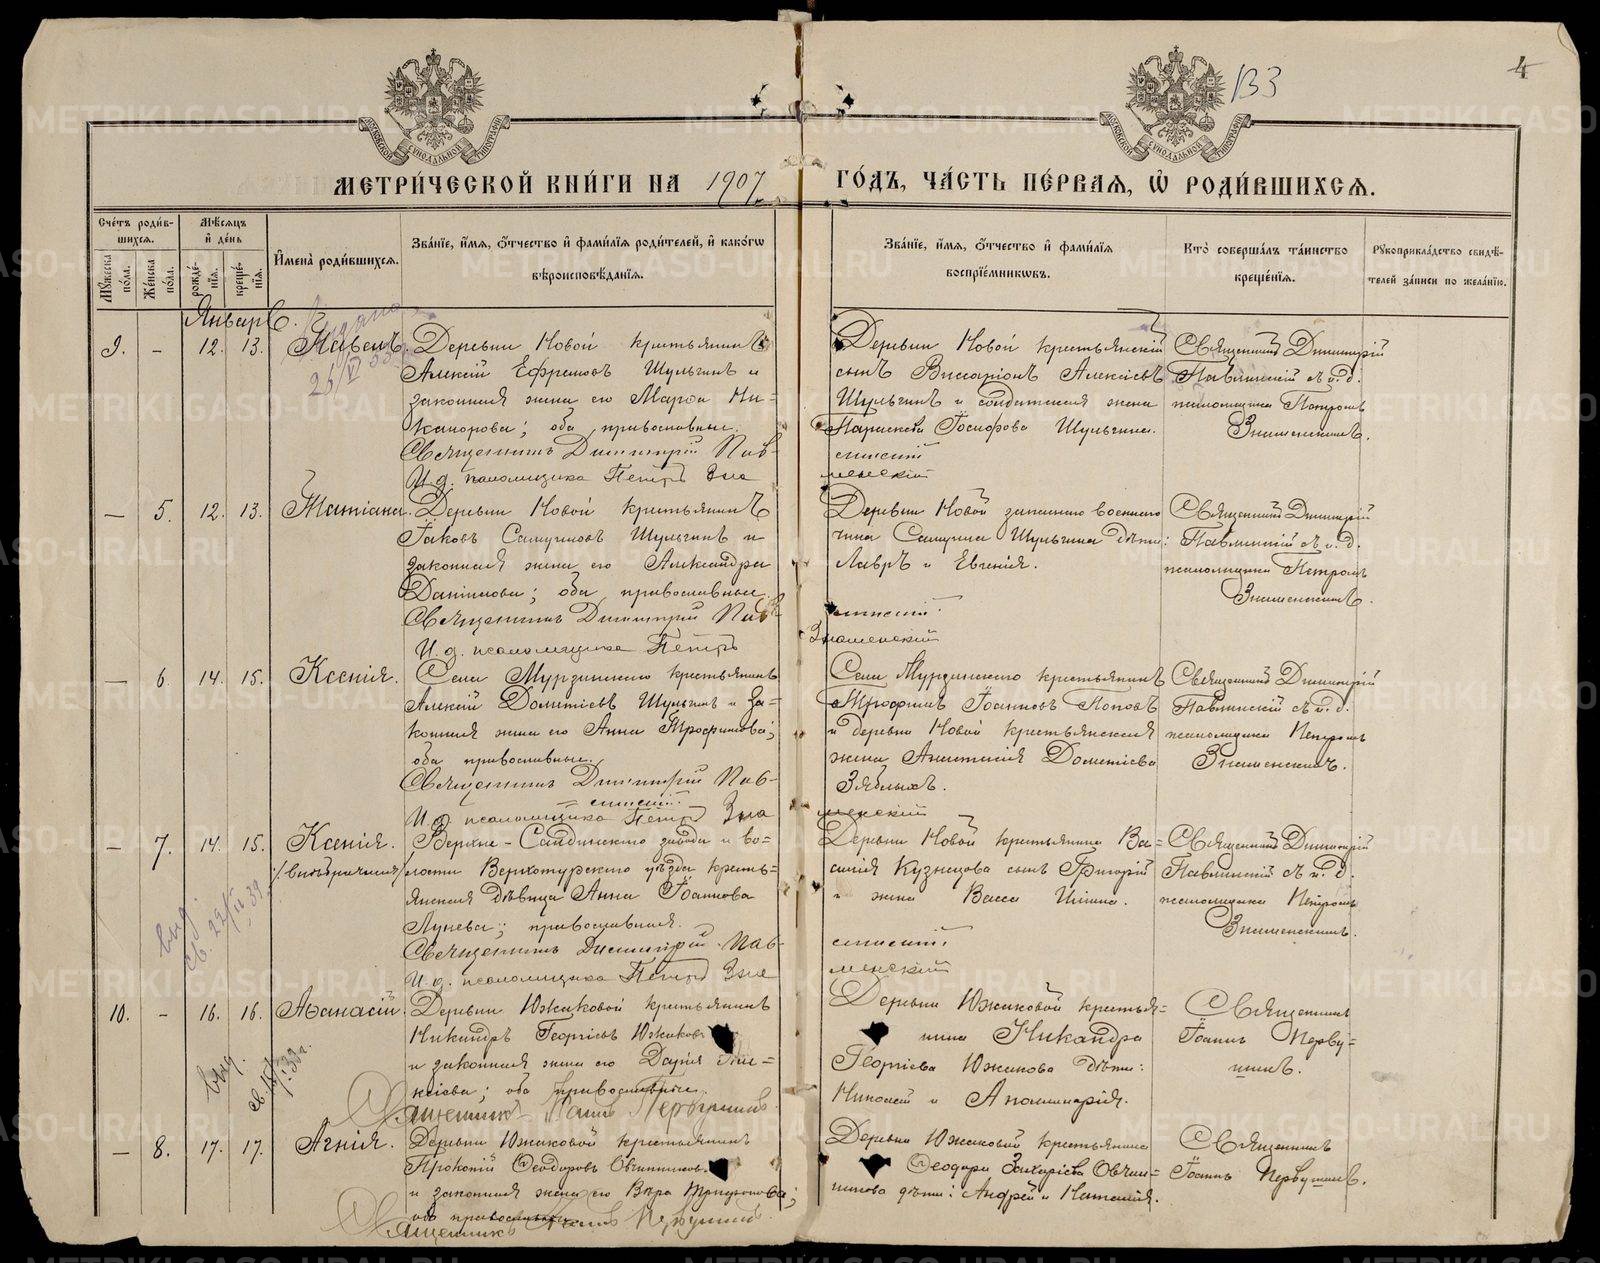 133
4
МОСКОВСКОЙ СУНОДАЛЬНОЙ ТИПОГРАФІИ
МОСКОВСКОЙ СУНОДАЛЬНОЙ ТИПОГРАФІИ
МЕТРИ́ЧЕСКОЙ КНИ́ГИ НА 1907 ГО́ДЪ, ЧА́СТЬ ПЕ́РВАЯ, Ѡ РОДИ́ВШИХСЯ.
Сче́тъ роди́в-
шихся.
Мꙋ́жеска по́ла.
Же́нска по́ла.
Мѣ́сяцъ
и҆ де́нь
рожде́-
нїя.
креще́-
нїя.
И҆мена̀ роди́вшихся.
Зва́нїе, и҆́мя, ѻ҆́тчество и҆ фами́лїя роди́телей, и҆ како́гѡ
вѣроисповѣ́данїя.
Зва́нїе, и҆́мя, ѻ҆́тчество и҆ фами́лїя
воспрїе́мниковъ.
Кто̀ соверша́лъ та́инство
креще́нїя.
Рꙋкоприкла́дство свидѣ́-
телей за́писи по жела́нїю.
Январь.
9. - 12. 13. Павелъ.
Деревни Новой крестьянинъ
Алексій Ефремовъ Шульгинъ и
законная жена его Марѳа Ни-
канорова; оба православные.
Священникъ Димитрій Пав-
линскій
И. д. псаломщика Петръ Зна
менскій
Деревни Новой крестьянскій
сынъ Виссаріонъ Алексіевъ
Шульгинъ и солдатская жена
Параскева Іосифова Шульгина.
Священникъ Димитрій
Павлинскій съ и. д.
псаломщика Петромъ
Знаменскимъ.
— 5. 12. 13. Татіана.
Деревни Новой крестьянинъ
Іаковъ Самуиловъ Шульгинъ и
законная жена его Александра
Даніилова; оба православные.
Священникъ Димитрій Пав
линскій.
И. д. псаломщика Петръ
Знаменскій
Деревни Новой запаснаго военнаго
чина Самуила Шульгина дѣти:
Лавръ и Евгенія.
Священникъ Димитрій
Павлинскій съ и. д.
псаломщика Петромъ
Знаменскимъ.
— 6. 14. 15. Ксенія.
Села Мурзинскаго крестьянинъ
Алексій Дометіевъ Шульгинъ и за-
конная жена его Анна Трофимова;
оба православные.
Священникъ Димитрій Пав-
линскій.
И. д. псаломщика Петръ Зна
менскій
Села Мурзинскаго крестьянинъ
Трофимъ Іоанновъ Поповъ
и деревни Новой крестьянская
жена Анастасія Дометіева
Зяблыхъ.
Священникъ Димитрій
Павлинскій съ и. д.
псаломщика Петромъ
Знаменскимъ.
— 7. 14. 15. Ксенія.
/внѣбрачная/
Верхне-Салдинскаго завода и во-
лости Верхотурскаго уѣзда кресть-
янская дѣвица Анна Іоаннова
Лунева; православная.
Священникъ Димитрій Пав-
линскій.
И. д. псаломщика Петръ Зна
менскій
Деревни Новой крестьянина Ва-
силія Кузнецова сынъ Григорій
и жена Васса Ильина.
Священникъ Димитрій
Павлинскій съ и. д.
псаломщика Петромъ
Знаменскимъ.
10. - 16. 16. Аѳанасій.
Деревни Южаковой крестьянинъ
Никандръ Георгіевъ Южаковъ
и законная жена его Дарія
оба православные
Священникъ Іоаннъ Первушинъ.
Деревни Южаковой крестья-
нина Никандра
Георгіева Южакова дѣти:
Николай и Аполлинарія.
Священникъ
Іоаннъ Перву-
шинъ.
— 8. 17. 17. Агнія.
Деревни Южаковой крестьянинъ
Прокопій Ѳеодоровъ Овчинниковъ
и законная жена его Вѣра Трифонова;
оба православные
Священникъ Іоаннъ Первушинъ.
Деревни Южаковой крестьянина
Ѳеодора Захаріева Овчин-
никова дѣти: Андрей и Наталія.
Священникъ
Іоаннъ Первушинъ.
METRIKI.GASO-URAL.RU